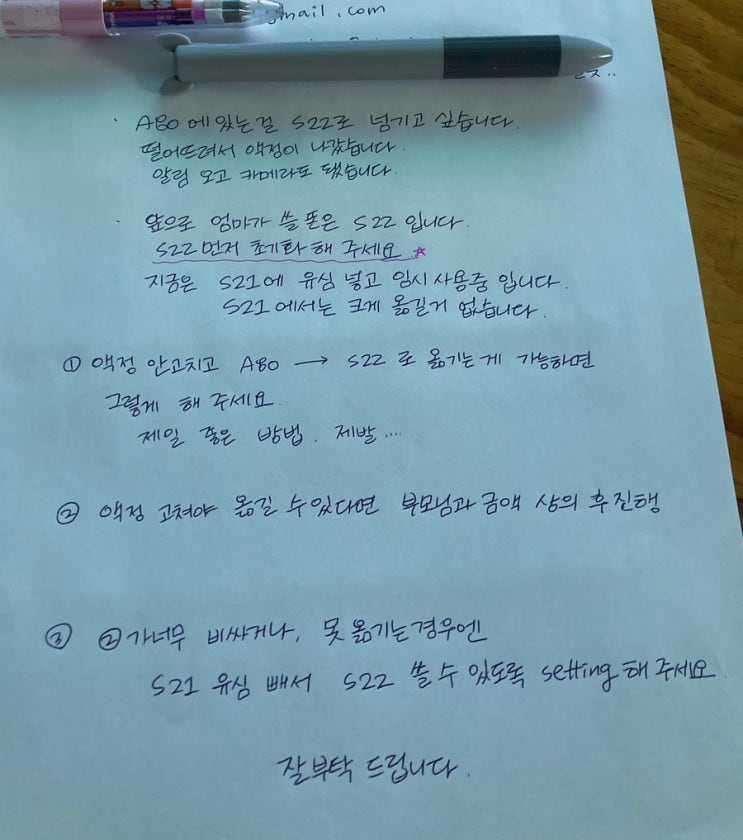 mail.com
· A80에 있는걸 S22로 넘기고 싶습니다.
떨어뜨려서 액정이 나갔습니다.
알림 오고 카메라도 됐습니다.
· 앞으로 엄마가 쓸 폰은 S22 입니다.
S22 먼저 초기화 해 주세요 ☆
지금은 S21에 유심 넣고 임시 사용중 입니다.
S21 에서는 크게 옮길거 없습니다.
① 액정 안고치고 A80 → S22 로 옮기는 게 가능하면
그렇게 해 주세요.
제일 좋은 방법. 제발 ....
② 액정 고쳐야 옮길 수 있다면 부모님과 금액 상의 후 진행
③ ②가 너무 비싸거나, 못 옮기는 경우엔
S21 유심 빼서 S22 쓸 수 있도록 setting 해 주세요.
잘 부탁 드립니다.